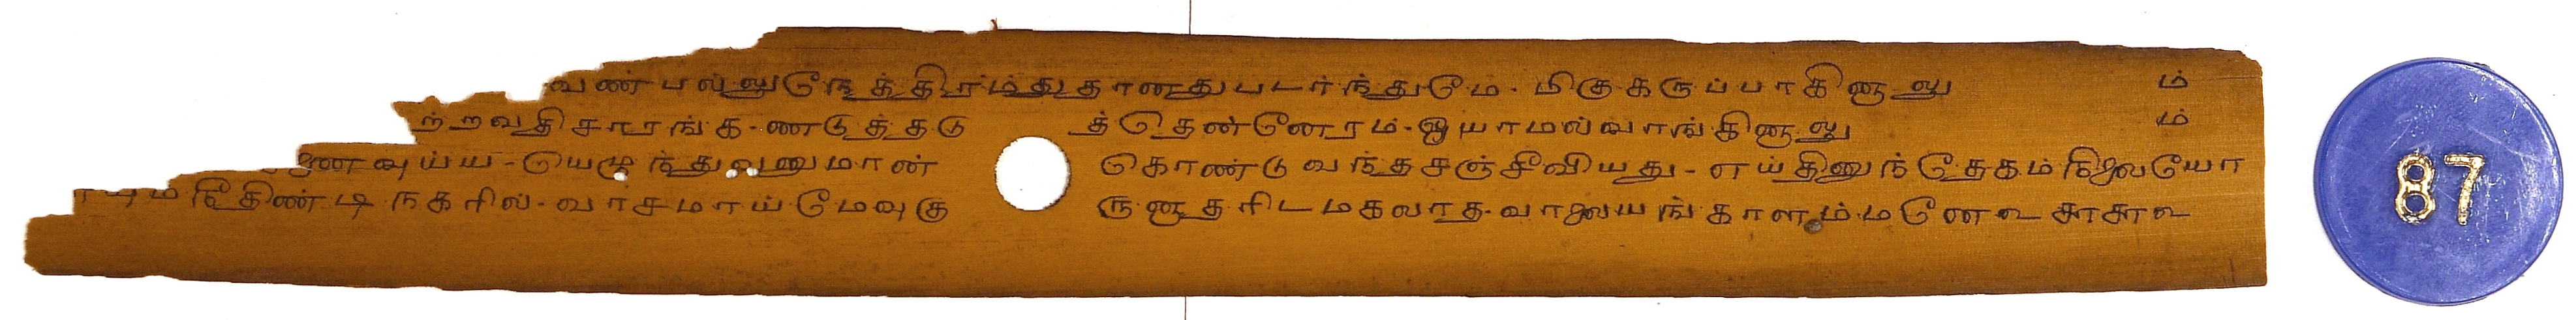 வண் பல்லுநேத்திரம்மது தானது படர்ந்துமே - மிகு கருப்பாகினாலு ம்
ற்றவதிசாரங்க - ணடுத்தடு த்தெண்ணேரம் - ஓயாமல் வாங்கினாலு ம்
ணவுய்ய - யெழுந்து வனுமான் கொண்டு வந்த சஞ்சீவியது - எய்தினுந் தேகம் நிலையோ
ம் நீதிண்டி நகரில் - வாசமாய் மேவு கு ருனாதரிடமகலாத - வாலையங்காளம்மனே உ
87